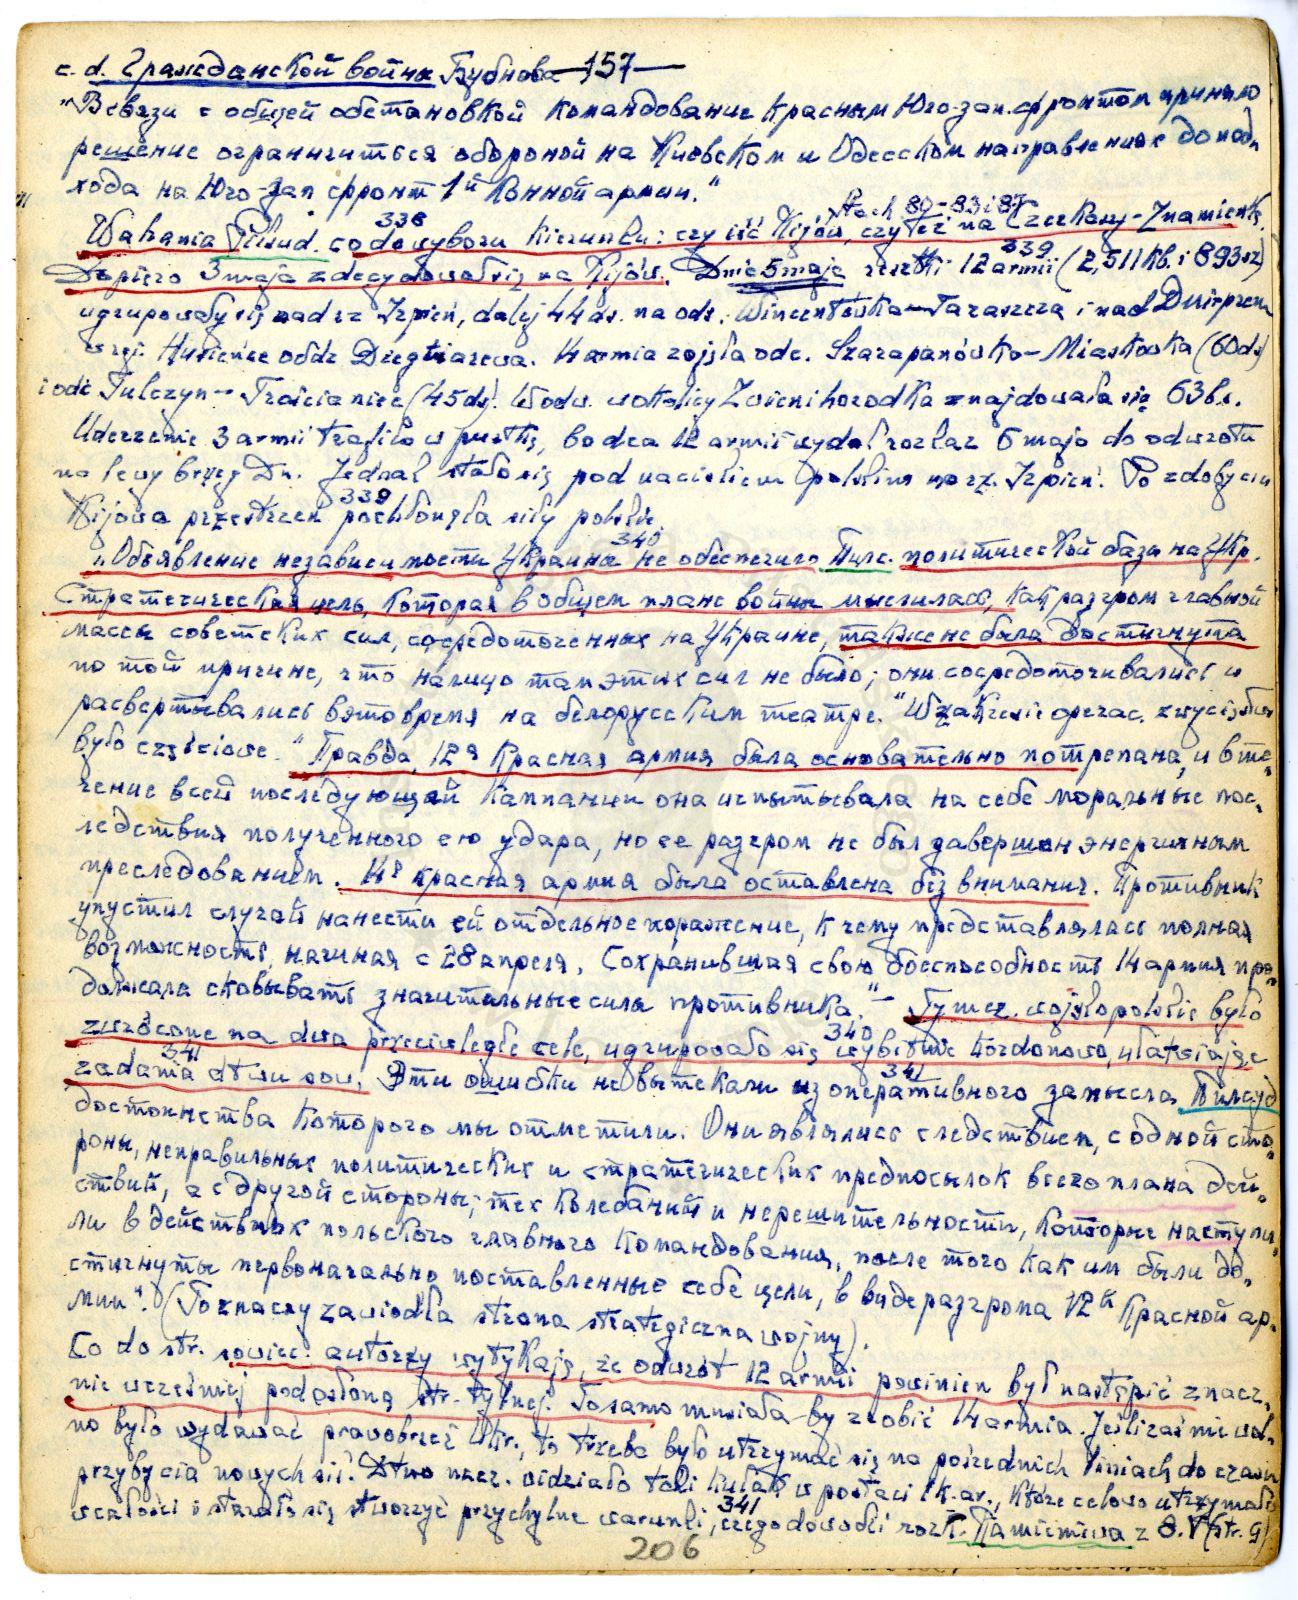 c. d. Гражданской войны Бубнова —157—
"В связи с общей обстановкой командование Красным Юго-зап. фронтом приняло
решение ограничиться обороной на Киевском и Одесском направлениях до под-
хода на Юго-Зап фронт 1й Конной армии."
Stach 80-83 i 87
Wahania Piłsud. co do wyboru kierunku: czy iść Kijów, czy też na Czerkasy-Znamienkę.
338 339
Dopiero 3 maja zdecydował się na Kijów. Dnia 5 maja resztki 12 armii (2,511 kb. i 893 sz)
ugrupowały się nad rz Irpień, dalej 44 ds. na ods. Wincentówka-Taraszcza i nad Dnieprem
w rej. oddz Diegtiarewa. 14 armia zajęła odc. Szarapanówka-Miastówka (60ds)
i odc Tulczyn-Trościaniec (45ds). W odw. w okolicy Zwienihorodka znajdowała się 63 b.s.
Uderzenie 3 armii trafiło w pustkę, bo dca 12 armii wydał rozkaz 6 maja do odwrotu
na lewy brzeg Dn. Jednak stało się pod naciskiem polskim na rz. Irpień. Po zdobyciu
Kijowa przestrzeń pochłonęła siły polskie.
339 340
"Объявление независимости Украины не обеспечило Пилс. политической базы на Укр.
Стратегическая цель, которая в общем плане войны мыслилась, как разгром главной
массы советских сил, сосредоточенных на Украине, также не была достигнута
по той причине, что налицо там этих сил не было; они сосредоточивались и
развертывались в это время на белорусском театре." W zakresie operac. zwycięstwo
było częściowe. "Правда, 12я Красная армия была основательно потрепана, и в те-
чение всей последующей кампании она испытывала на себе моральные пос-
ледствия полученного ею удара, но ее разгром не был завершен энергичным
преследованием. 14я красная армия была оставлена без внимания. Противник
упустил случай нанести ей отдельное поражение, к чему представлялась полная
возможность, начиная с 28 апреля. Сохранившая свою боеспособность 14 армия про-
должала сковывать значительные силы противника." – Tymcz. wojsko polskie było
zwrócone na dwa przeciwległe cele, ugrupowało się wybitnie kordonowo, ułatwiając
340
zadania dtwu sow. Эти ошибки не вытекали из оперативного замысла Пилсуд
341 341
достоинства которого мы отметили. Они являлись следствием, с одной сто-
роны, неправильных политических и стратегических предпосылок всего плана дей-
ствий, а с другой стороны, тех колебаний и нерешительности, которые наступи-
ли в действиях польского главного командования, после того как им были до-
стигнуты первоначально поставленные себе цели, в виде разгрома 12й Красной ар-
мии". (To znaczy zawiodła strona strategiczna wojny).
Co do str. sowiec. autorzy wytykają, że odwrót 12 armii powinien był nastąpić znacz-
nie wcześniej pod osłoną str. tylnej. To samo musiała-by zrobić 14 armia. Jeśli zaś nie wol-
no było wydawać prawobrzeż Ukr., to trzeba było utrzymać się na pośrednich liniach do czasu
przybycia nowych sił. Dtwo nacz. widziało taki kułak w postaci 1 k.ar., które celowo utrzymało
w całości i starało się stworzyć przychylne warunki, czego dowodzi rozk. Kamieniewa z 8.V (str. 9)
341
206